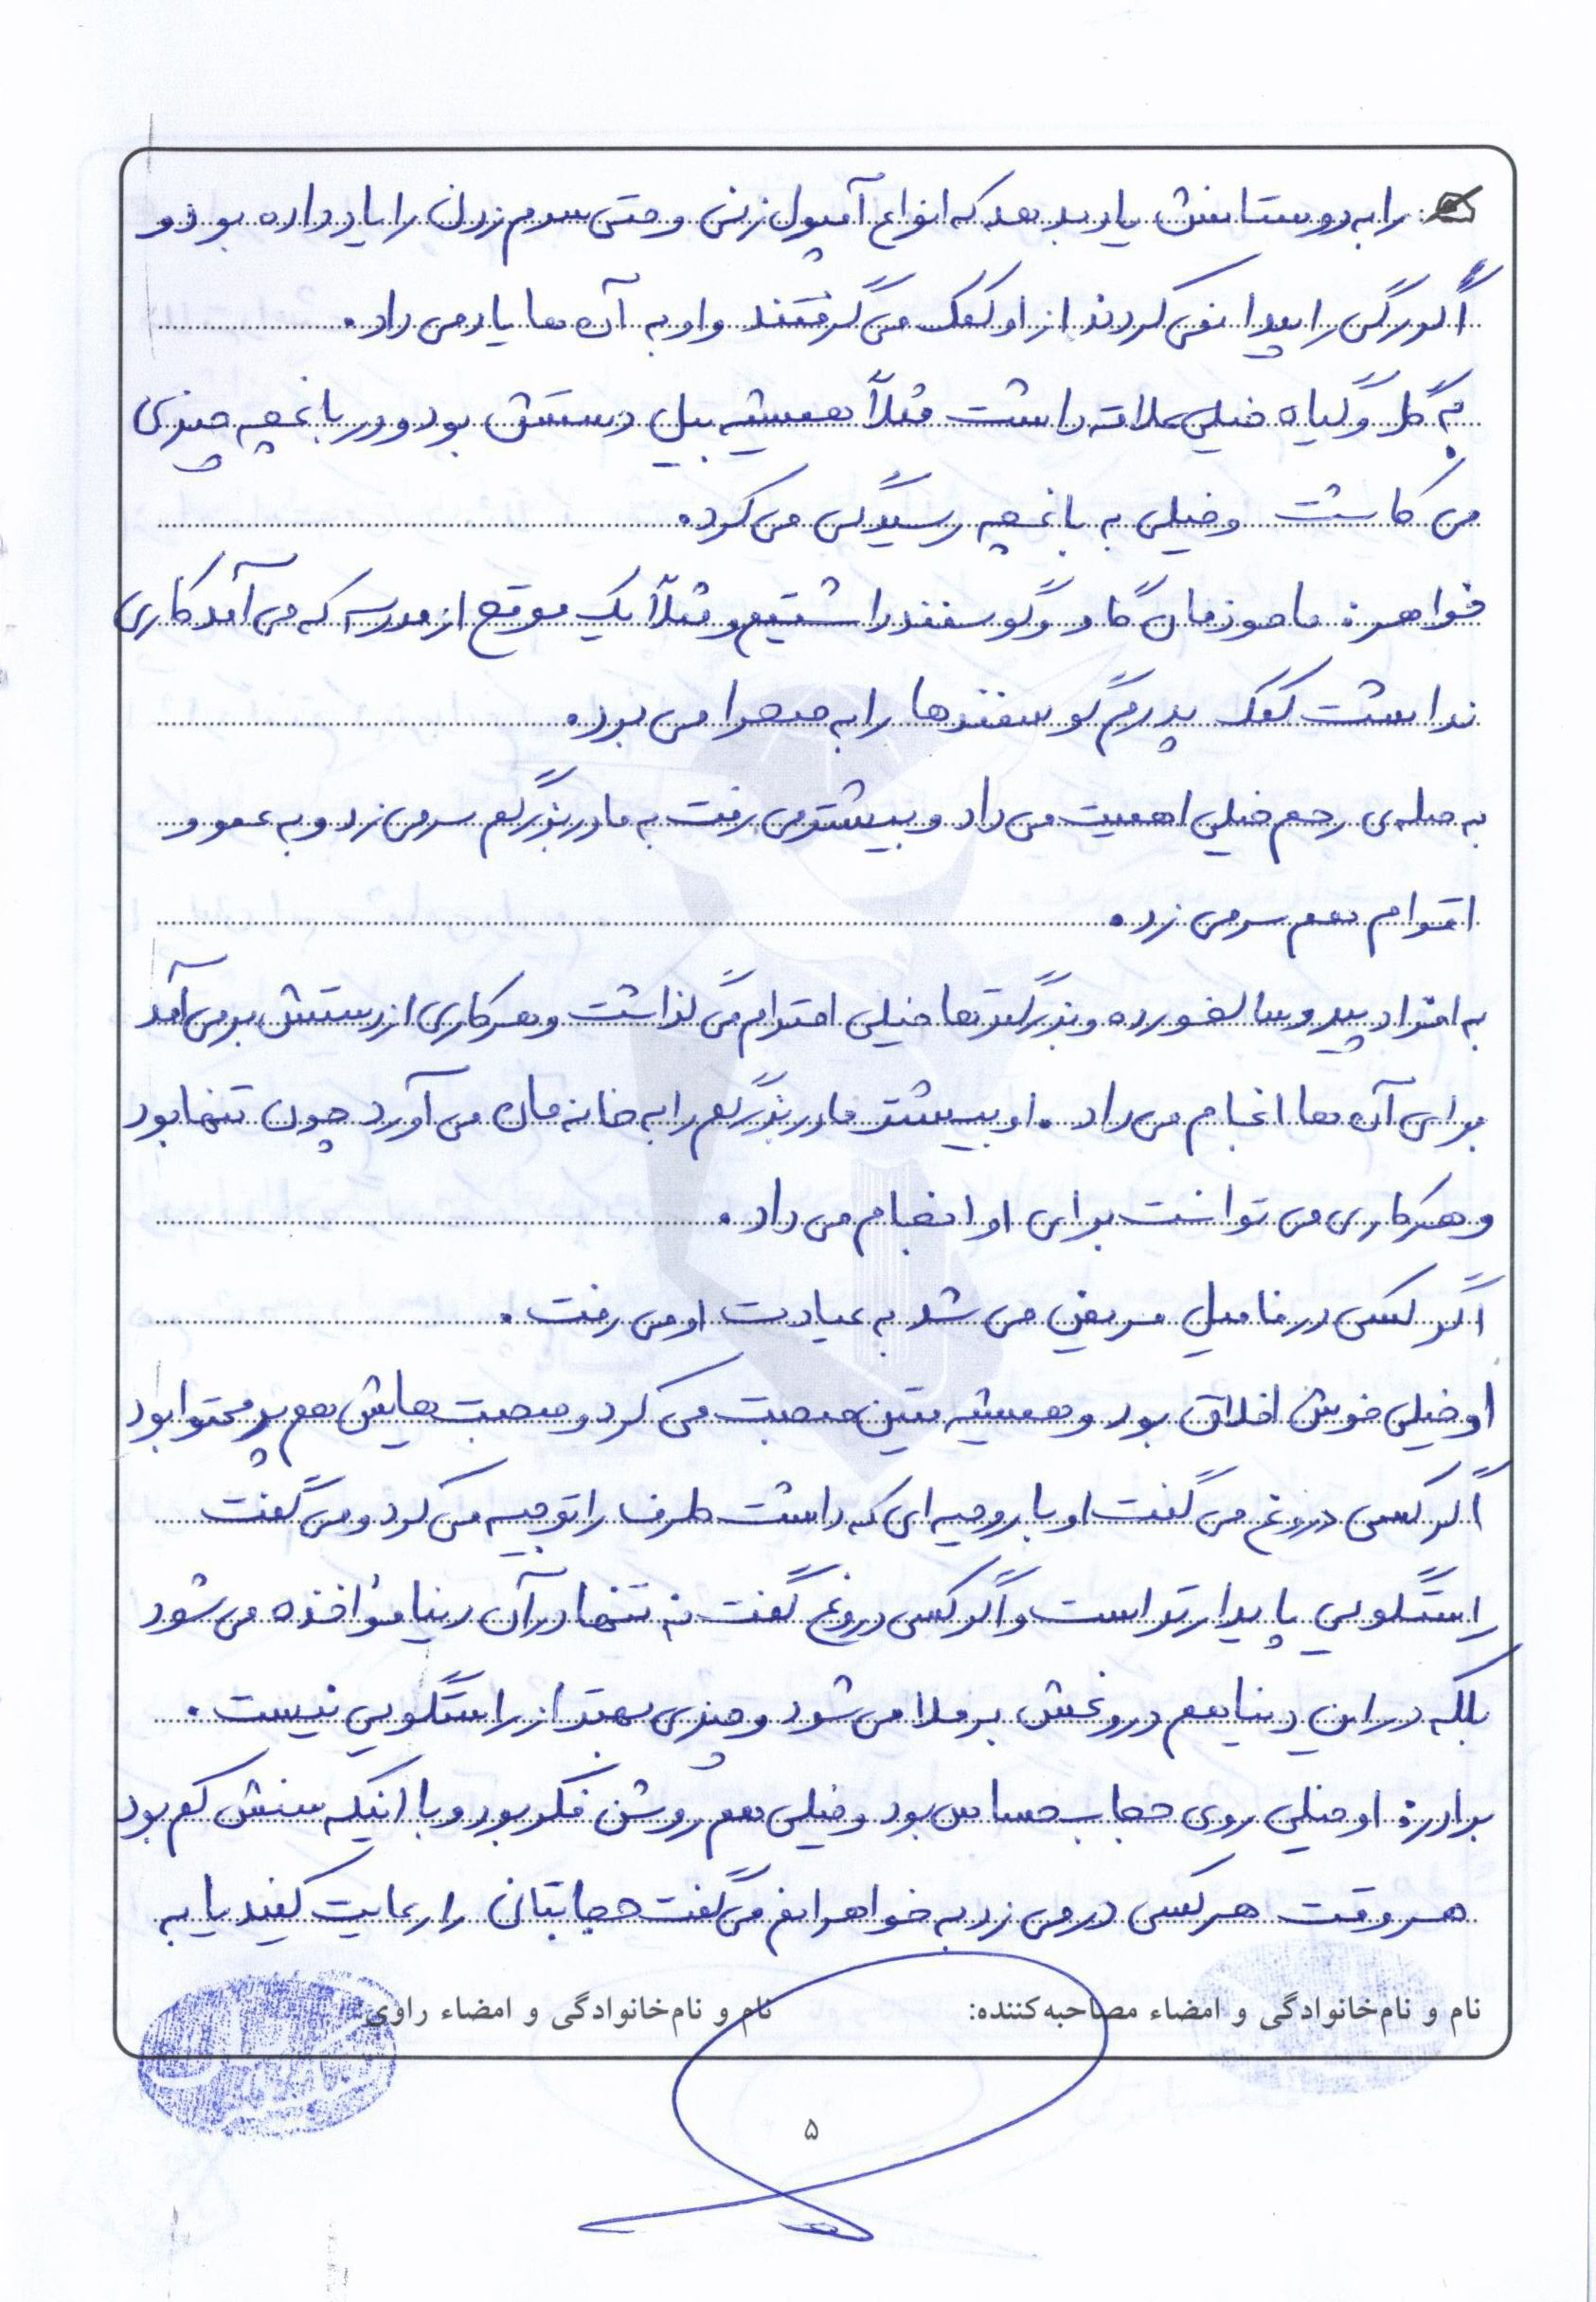 را به دوستانش یاد بدهد که انواع آمپول زنی و حتی سرم زدن را یاد داده بود و
اگر رگی را پیدا نمی کردند از او کمک می گرفتند و او به آن ها یاد می داد.
به گل و گیاه خیلی علاقه داشت مثلاً همیشه بیل دستش بود و در باغچه چیزی
می کاشت و خیلی به باغچه رسیدگی می کرد.
خواهر: ما خودمان گاو و گوسفند داشتیم و مثلاً یک موقع از مدرسه که می آمد کاری
نداشت کمک پدرم گوسفندها را به صحرا می برد.
به صله ی رحم خیلی اهمیت می داد و بیشتر می رفت به مادربزرگم سر می زد و به عمو و
اقوام هم سر می زد.
به افراد پیر و سالخورده و بزرگترها خیلی احترام می گذاشت و هر کاری از دستش بر می آمد
برای آن ها انجام می داد. او بیشتر مادربزرگم را به خانه مان می آورد چون تنها بود
و هر کاری می توانست برای او انجام می داد.
اگر کسی در فامیل مریض می شد به عیادت او می رفت.
او خیلی خوش اخلاق بود و همیشه متین صحبت می کرد و صحبت هایش هم پر محتوا بود
اگر کسی دروغ می گفت او با روحیه ای که داشت طرف را توجیه می کرد و می گفت
راستگویی پایدارتر است و اگر کسی دروغ گفت نه تنها در آن دنیا مؤاخذه می شود
بلکه در این دنیا هم دروغش برملا می شود و چیزی بهتر از راستگویی نیست.
برادر: او خیلی روی حجاب حساس بود و خیلی هم روشن فکر بود و با اینکه سنش کم بود
هر وقت هر کسی در می زد به خواهرانم می گفت حجابتان را رعایت کنید یا به
نام و نام‌خانوادگی و امضاء مصاحبه‌کننده: نام و نام‌خانوادگی و امضاء راوی:
۵